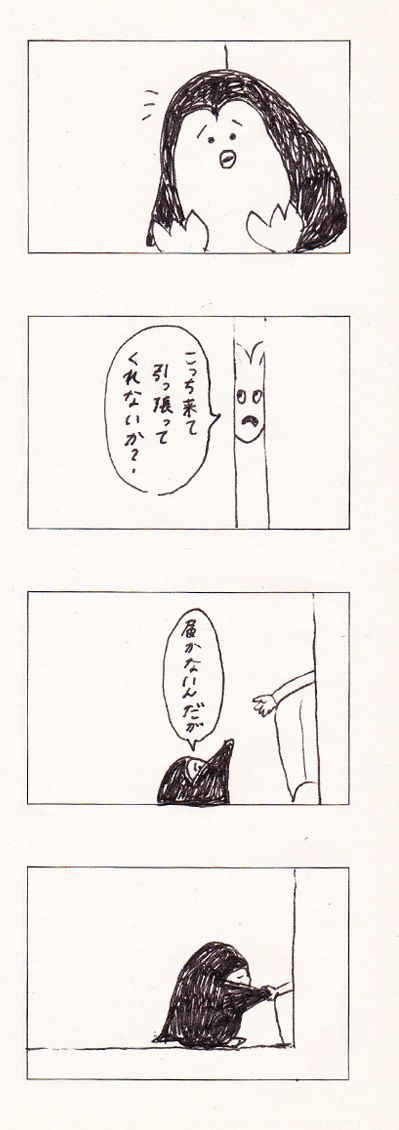 こっち来て
引っ張って
くれないか?.
届かないんだが